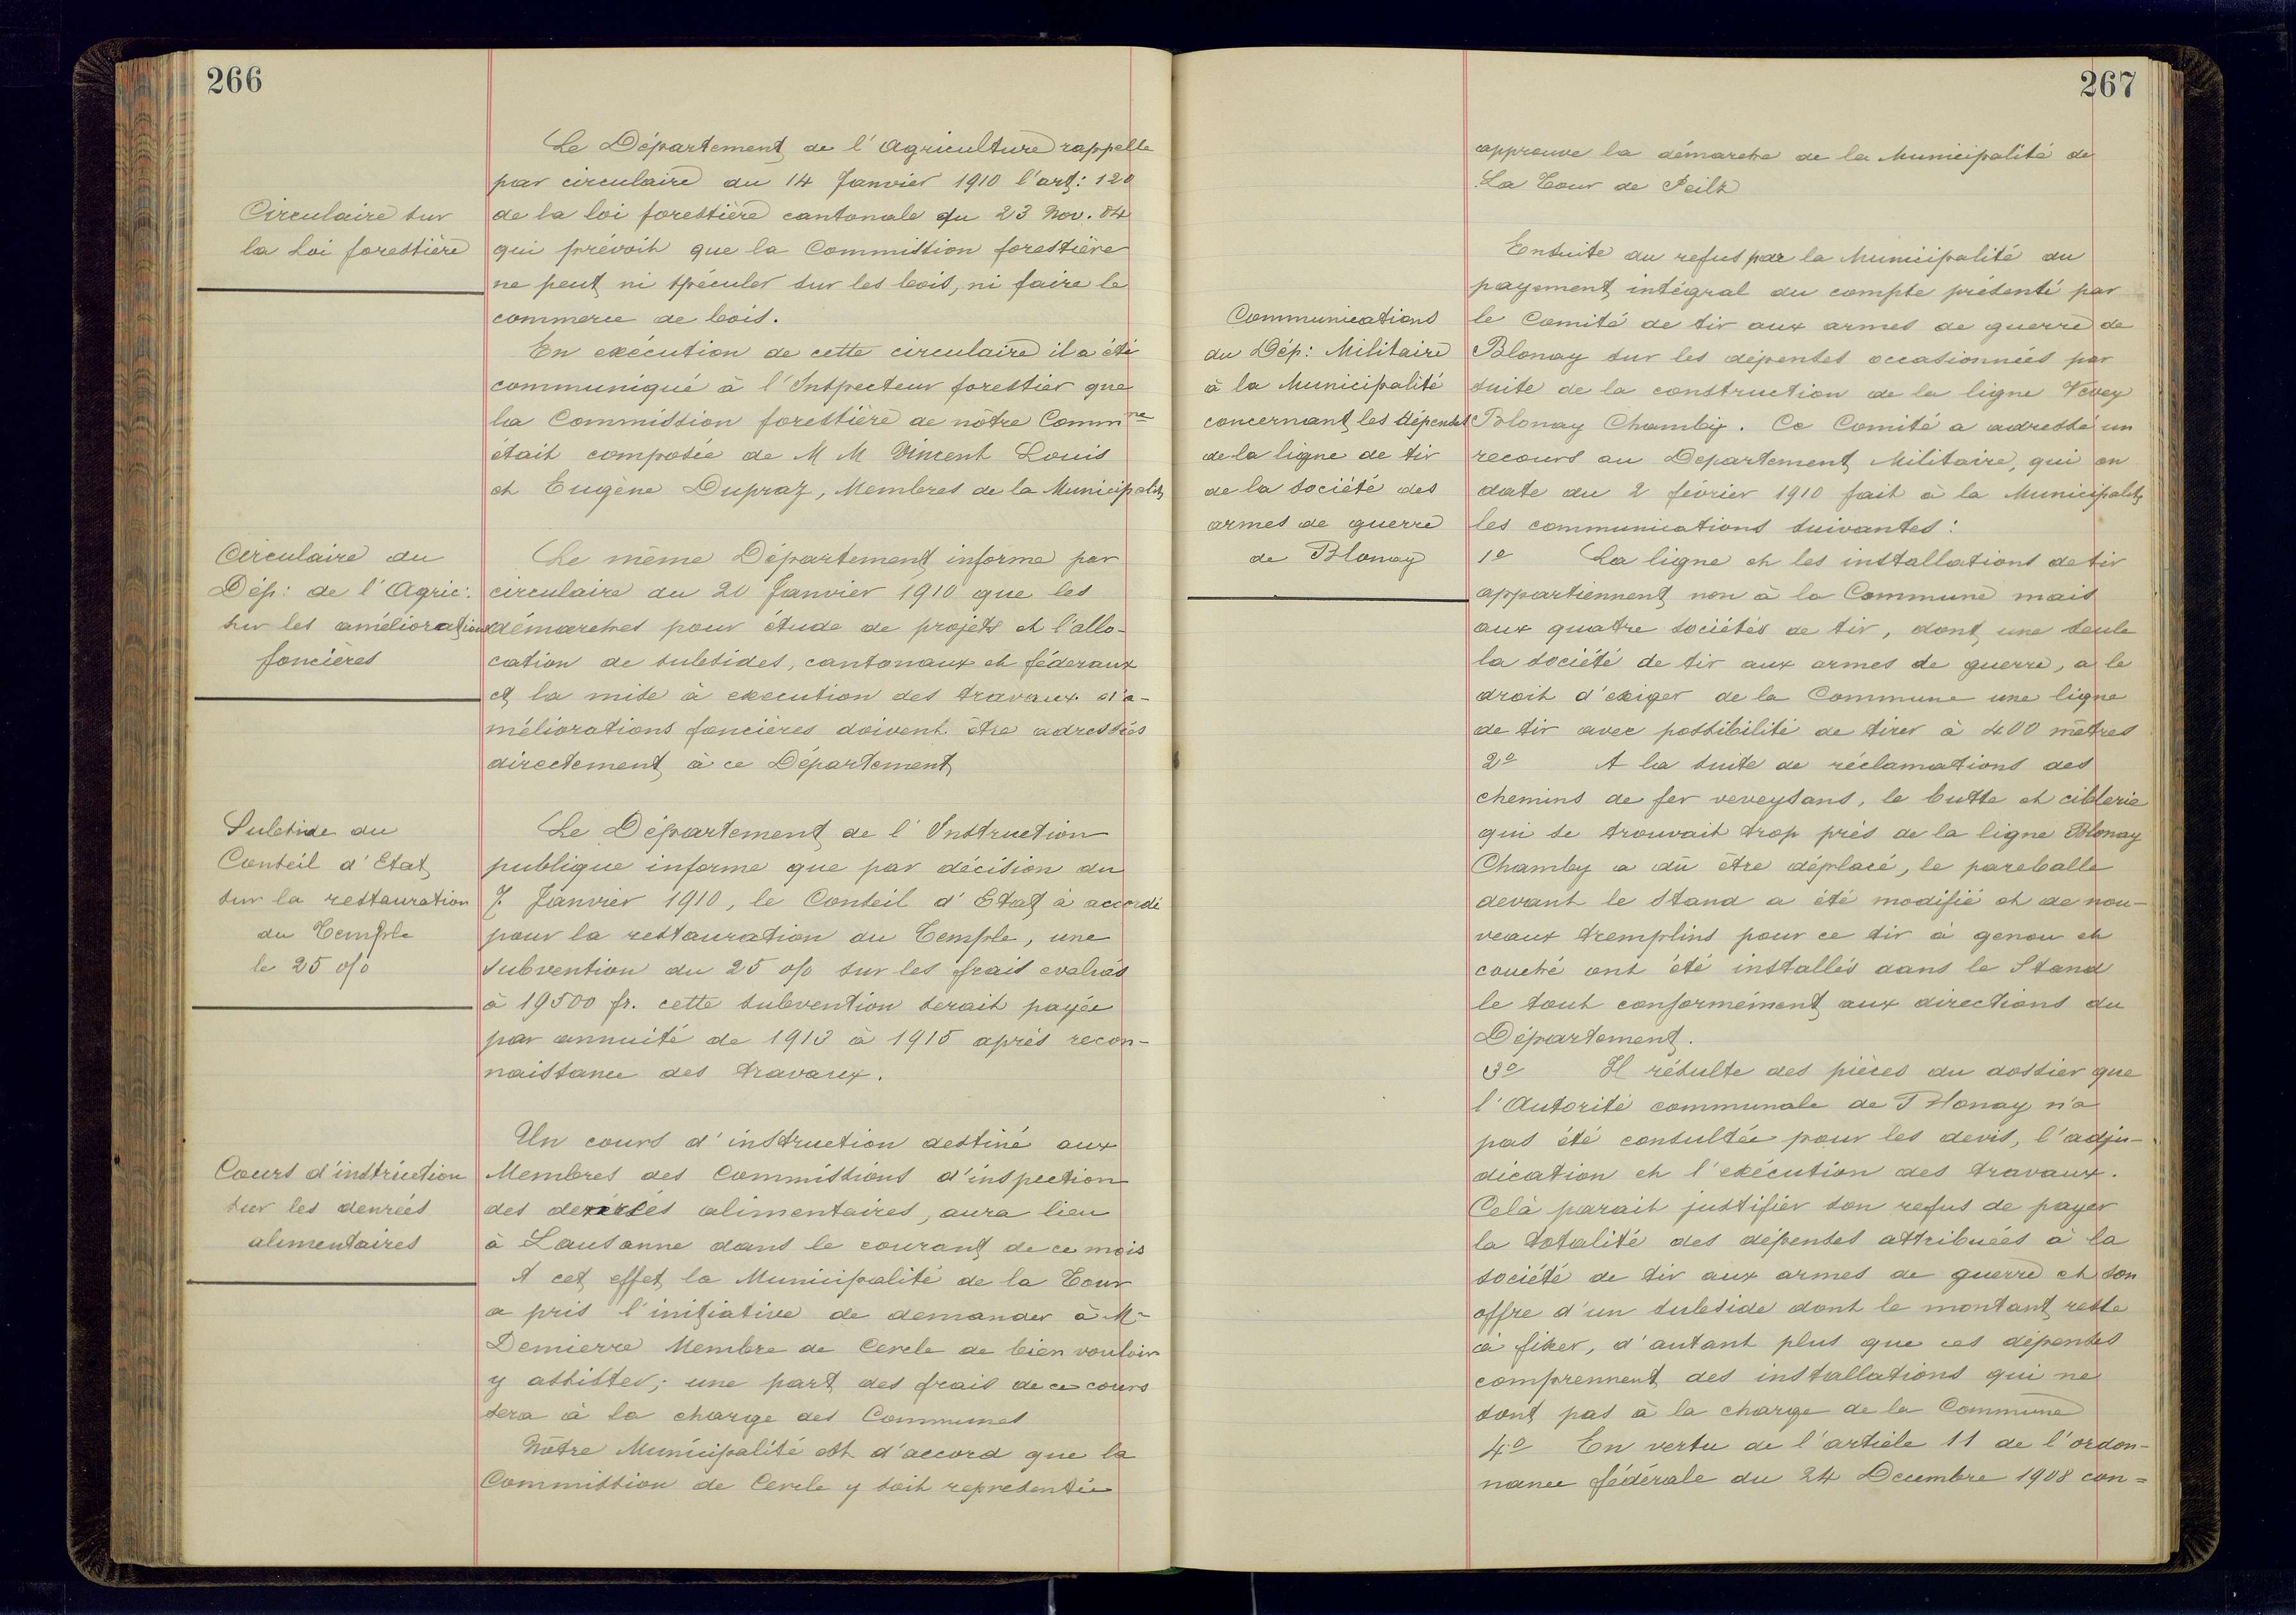 266
Le Département de l'Agriculture rappelle
par circulaire du 14 Janvier 1910 l'art: 120
Circulaire sur
la Loi forestière
de la loi forestière cantonale du 23 Nov. 04
qui prévoit que la Commission forestière
ne peut ni spéculer sur les bois, ni faire le
commerce de bois.
En exécution de cette circulaire il a été
communiqué à l'Inspecteur forestier que
la Commission forestière de nôtre Commne
était composée de M M Vincent Louis
et Eugène Dupraz, Membres de la Municipalité
Circulaire du
Dép: de l'Agric:
sur les améliorations
foncières
Le même Département informe par
circulaire du 20 Janvier 1910 que les
démarches pour étude de projets et l'allo-
cation de subsides, cantonaux et féderaux
et la mise à execution des travaux d'a-
méliorations foncières doivent être adressées
directement à ce Département
Subside du
Conseil d'Etat
sur la restauration
du Temple
le 25 0/0
Le Département de l'Instruction
publique informe que par décision du
7. Janvier 1910, le Conseil d'Etat à accordé
pour la restauration du Temple, une
subvention du 25 0/0 sur les frais evalués
à 19500 fr. cette subvention serait payée
par annuité de 1913 à 1915 après recon-
naissance des travaux.
Cours d'instruction
sur les denrées
alimentaires
Un cours d'instruction destiné aux
Membres des Commissions d'inspection
des denrées alimentaires, aura lieu
à Lausanne dans le courant de ce mois
A cet effet la Municipalité de la Tour
a pris l'initiative de demander à Mr
Demierre Membre de Cercle de bien vouloir
y assister; une part des frais de ce cours
sera à la charge des Communes
Nôtre Municipalité est d'accord que la
Commission de Cercle y soit representée
267
approuve la démarche de la Municipalité de
La Tour de Peilz
Communications
du Dép: Militaire
à la Municipalité
concernant les dépenses
de la ligne de tir
de la société des
armes de guerre
de Blonay
Ensuite du refus par la Municipalité du
payement intégral du compte présenté par
le Comité de tir aux armes de guerre de
Blonay sur les dépenses occasionnées par
suite de la construction de la ligne Vevey
Blonay Chamby. Ce Comité a adressé un
recours au Departement Militaire, qui en
date du 2 février 1910 fait à la Municipalité
les communications suivantes:
1o La ligne et les installations de tir
appartiennent non à la Commune mais
aux quatre sociétés de tir, dont une seule
la société de tir aux armes de guerre, a le
droit d'exiger de la Commune une ligne
de tir avec possibilité de tirer à 400 mètres
2o A la suite de réclamations des
chemins de fer veveysans, le butte et ciblerie
qui se trouvait trop près de la ligne Blonay
Chamby a dû être déplacé, le pareballe
devant le Stand a été modifié et de nou-
veaux tremplins pour ce tir à genou et
couché ont été installés dans le Stand
le tout conformément aux directions du
Département.
3o Il résulte des pièces du dossier que
l'Autorité communale de Blonay n'a
pas été consultée pour les devis, l'adju-
dication et l'exécution des travaux.
Celà parait justifier son refus de payer
la totalité des dépenses attribuées à la
société de tir aux armes de guerre et son
offre d'un subside dont le montant reste
à fixer, d'autant plus que ces dépenses
comprennent des installations qui ne
sont pas à la charge de la Commune
4o En vertu de l'article 11 de l'ordon-
nance fédérale du 24 Decembre 1908 con=